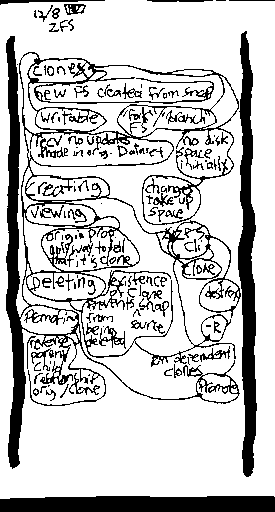 12/8
ZFS
Clones
new FS created from snap
Writable
"Fork" "branch"
FS
recv no updates
made in orig. Dataset
no disk
space
initially
Creating
changes
take up
space
Viewing
origin prop
only way to tell
that it is clone
ZFS
Cli
clone
Deleting
existence
of clone
prevents snap
from source
being
deleted
destroy
-R
Promoting
reverse
parent/
child
relationship
orig/clone
on dependent
clones
Promote